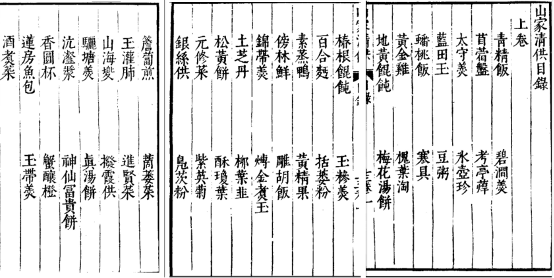 山家清供目錄
上卷
青精飯 碧澗羹
苜蓿盤 考亭蔊
太守羹 氷壺珍
藍田玉 豆粥
蟠桃飯 寒具
黃金雞 槐葉淘
地黃餛飩 梅花湯餅
椿根餛飩 玉糝羹
百合麪 括蔞粉
素蒸鴨 黃精果
傍林鮮 雕胡飯
錦帶羹 煿金煮玉
土芝丹 柳葉韭
松黃餅 酥瓊葉
元修菜 紫英菊
銀絲供 鳧茨粉
薝蔔煎 蒿蔞菜
玉灌肺 進賢菜
山海兜 撥霞供
驪塘羹 真湯餅
沆瀣漿 神仙富貴餅
香圓杯 蟹釀橙
蓮房魚包 玉帶羹
酒煮菜